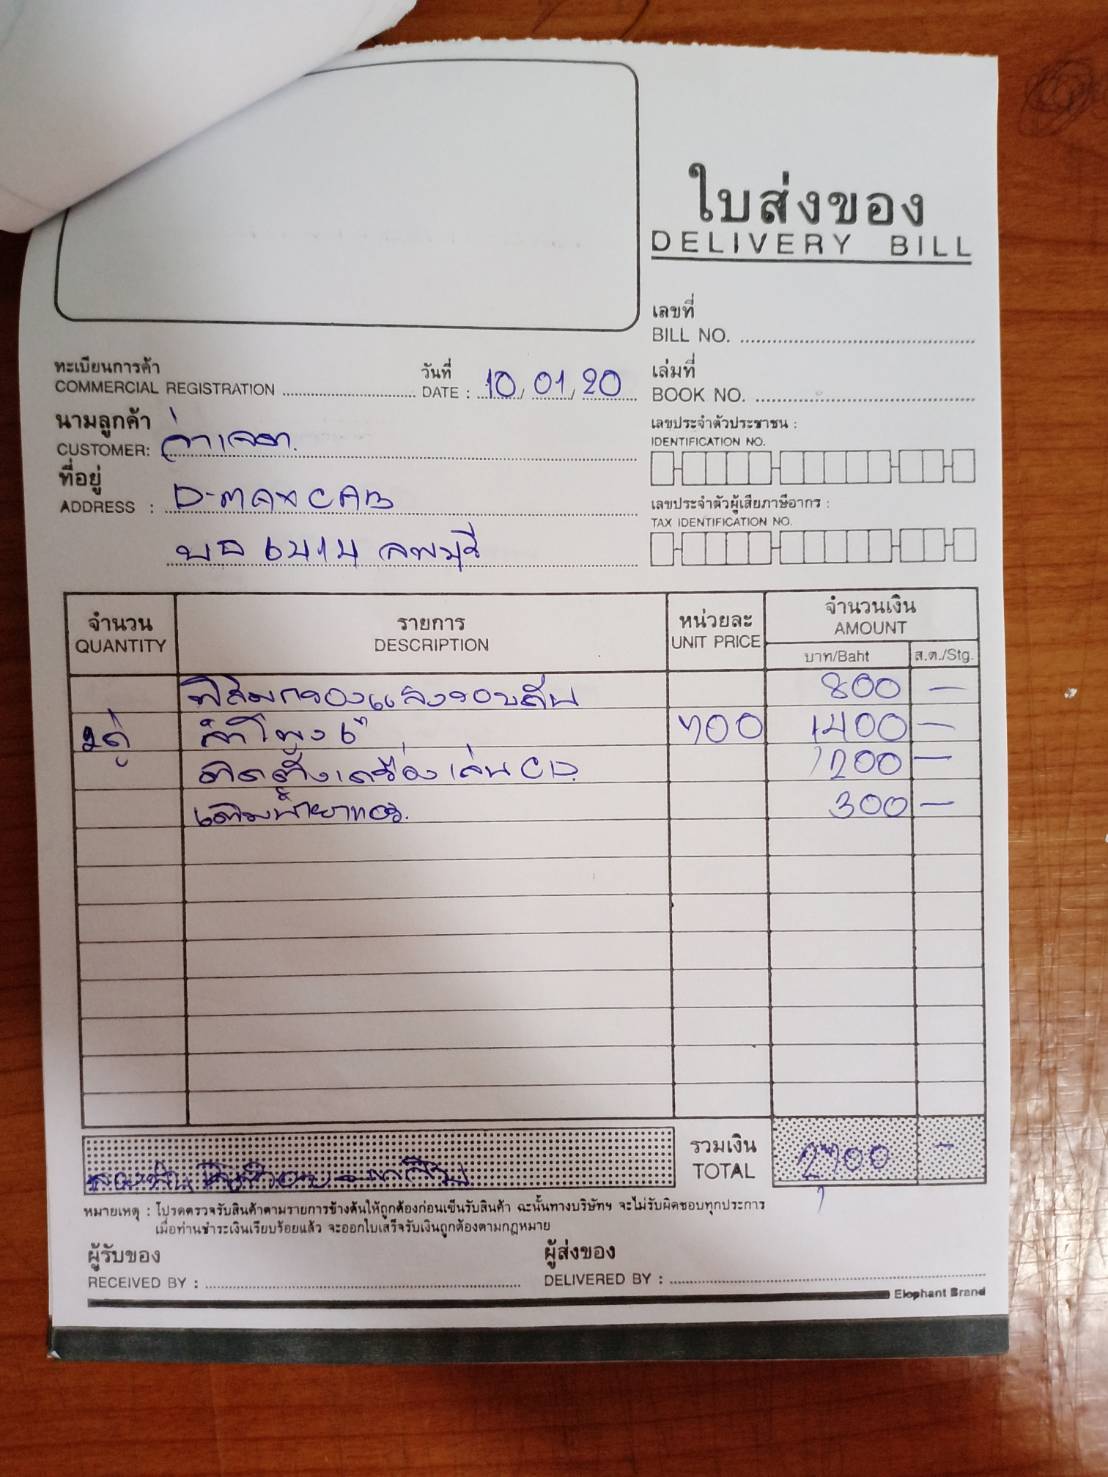 ใบส่งของ
DELIVERY BILL
เลขที่
BILL NO.
ทะเบียนการค้า
COMMERCIAL REGISTRATION
วันที่
DATE : 10, 01, 20
เล่มที่
BOOK NO.
นามลูกค้า
CUSTOMER:
เลขประจำตัวประชาชน :
IDENTIFICATION NO.
ที่อยู่
ADDRESS : D-MAX CAB
เลขประจำตัวผู้เสียภาษีอากร :
TAX IDENTIFICATION NO.
ลพบุรี
จำนวน
QUANTITY
รายการ
DESCRIPTION
หน่วยละ
UNIT PRICE
จำนวนเงิน
AMOUNT
บาท/Baht ส.ต./Stg.
ฟิล์มกรองแสงรอบคัน 800 —
2คู่ ลำโพง 6" 700 1400 —
ติดตั้งเครื่องเล่น CD. 200 —
เติมน้ำยาแอร์. 300 —
รวมเงิน
TOTAL 2700 -
หมายเหตุ : โปรดตรวจรับสินค้าตามรายการข้างต้นให้ถูกต้องก่อนเซ็นรับสินค้า ฉะนั้นทางบริษัทฯ จะไม่รับผิดชอบทุกประการ
เมื่อท่านชำระเงินเรียบร้อยแล้ว จะออกใบเสร็จรับเงินถูกต้องตามกฎหมาย
ผู้รับของ
RECEIVED BY :
ผู้ส่งของ
DELIVERED BY :
Elephant Brand